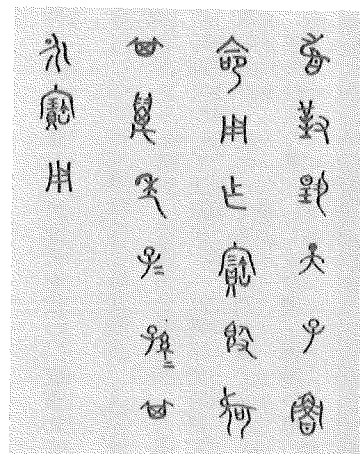 首對揚天子魯
命用作寶簋何
其萬年子=孫=其
永寶用